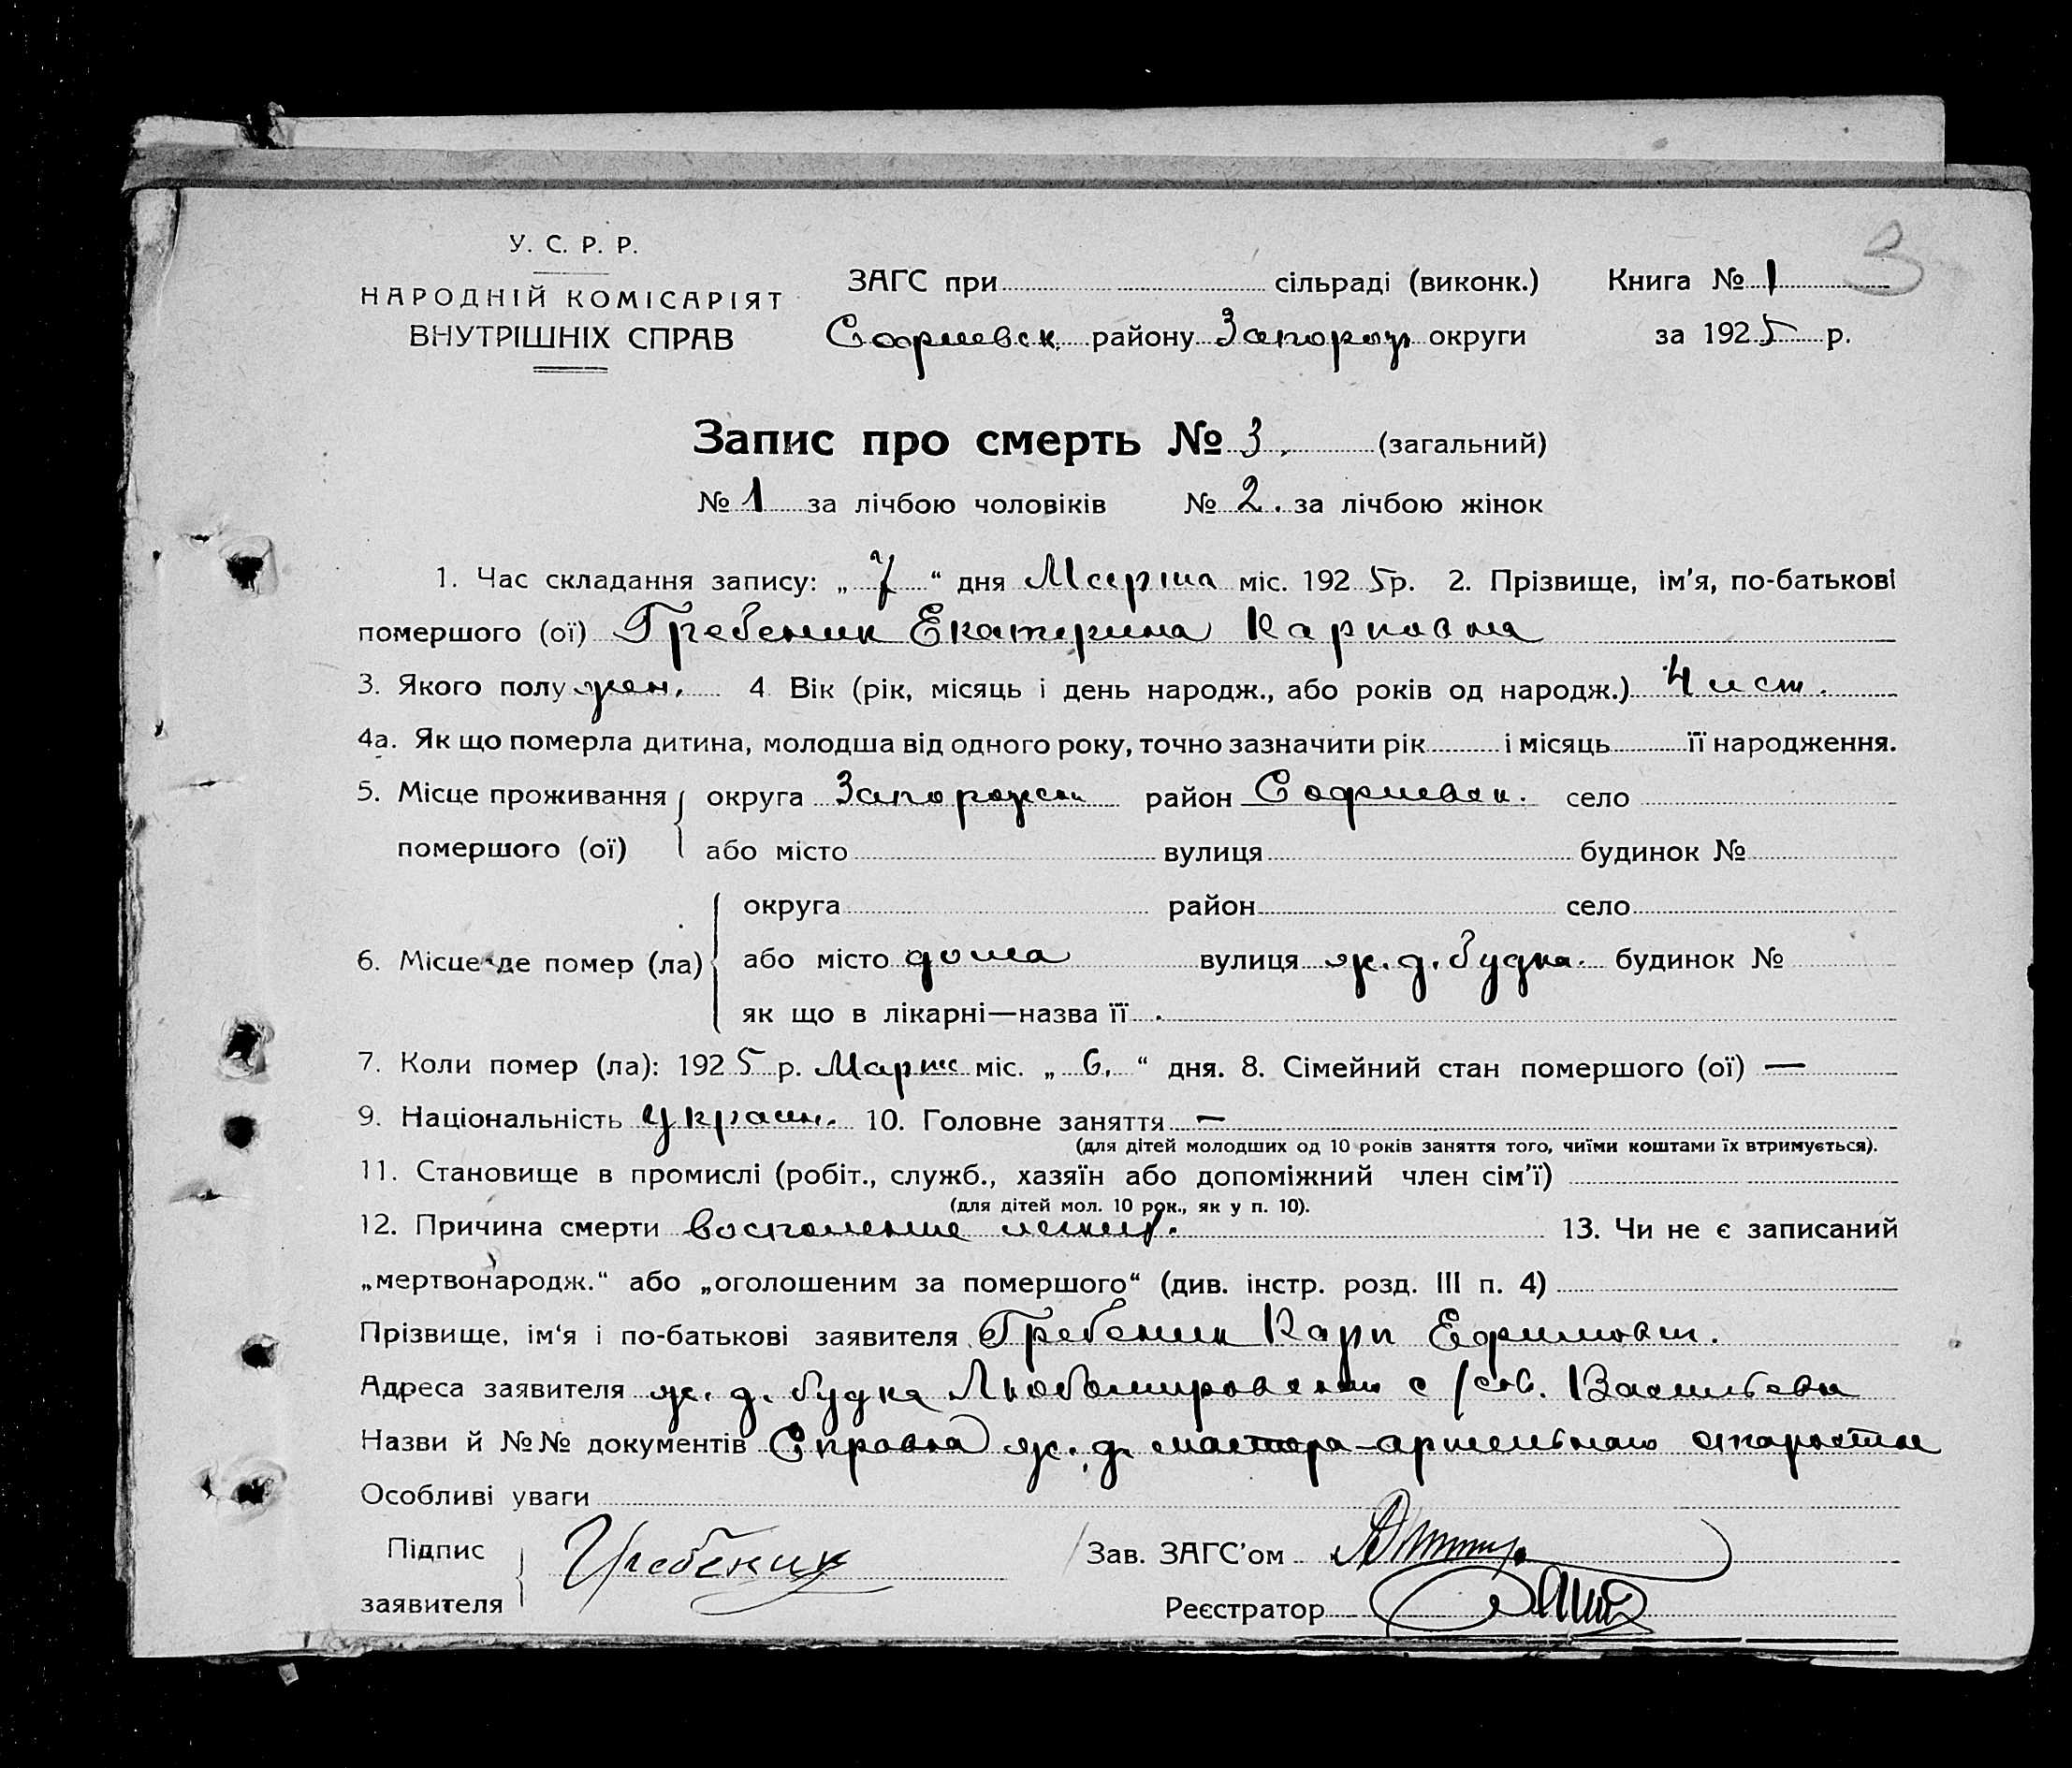 3
У. С. Р. Р.
НАРОДНІЙ КОМІСАРІЯТ
ВНУТРІШНІХ СПРАВ
ЗАГС при сільраді (виконк.) Книга № 1
Софиевск. району Запорож округи за 1925 р.
Запис про смерть № 3. (загальний)
№ 1 за лічбою чоловіків № 2. за лічбою жінок
1. Час складання запису: „ 7 “ дня Марта міс. 1925 р. 2. Прізвище, ім'я, по-батькові
помершого (ої) Гребеник Екатерина Карповна
3. Якого полу жен. 4. Вік (рік, місяць і день народж., або років од народж.) 4
4а. Як що померла дитина, молодша від одного року, точно зазначити рік і місяць її народження.
5. Місце проживання округа Запорожск район Софиевск. село
помершого (ої) або місто вулиця будинок №
округа район село
6. Місце де помер (ла) або місто дома вулиця ж. д. будка. будинок №
як що в лікарні—назва її
7. Коли помер (ла): 1925 р. Марта міс. „ 6. “ дня. 8. Сімейний стан помершого (ої) —
9. Національність Украин. 10. Головне заняття —
(для дітей молодших од 10 років заняття того, чиїми коштами їх втримується).
11. Становище в промислі (робіт., служб., хазяїн або допоміжний член сім'ї)
(для дітей мол. 10 рок., як у п. 10).
12. Причина смерти воспаление легких. 13. Чи не є записаний
„мертвонародж.“ або „оголошеним за помершого“ (див. інстр. розд. III п. 4)
Прізвище, ім'я і по-батькові заявителя Гребеник Карп Ефимович.
Адреса заявителя ж. д. будка Любомировский с/сов. Васильевк
Назви й №№ документів Справка ж. д. мастора-артельного старосты
Особливі уваги
Підпис Гребеник Зав. ЗАГС'ом
заявителя Реєстратор